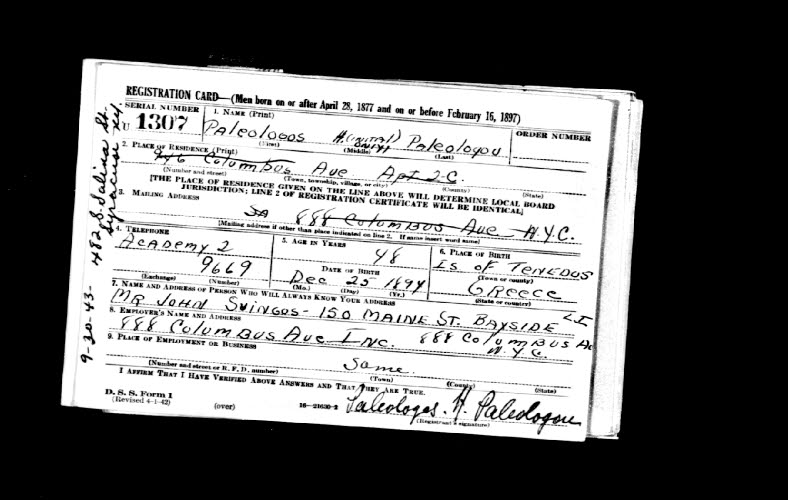 REGISTRATION CARD—(Men born on or after April 28, 1877 and on or before February 16, 1897)
SERIAL NUMBER
1. NAME (Print)
ORDER NUMBER
U 1307
Paleologos H. (INITIAL ONLY) Paleologou
(First) (Middle) (Last)
2. PLACE OF RESIDENCE (Print)
Columbus Ave Apt 2-C.
(Number and street) (Town, township, village, or city) (County) (State)
[THE PLACE OF RESIDENCE GIVEN ON THE LINE ABOVE WILL DETERMINE LOCAL BOARD
JURISDICTION; LINE 2 OF REGISTRATION CERTIFICATE WILL BE IDENTICAL]
3. MAILING ADDRESS
888 Columbus Ave N.Y.C.
[Mailing address if other than place indicated on line 2. If same insert word same]
4. TELEPHONE
5. AGE IN YEARS
6. PLACE OF BIRTH
Academy 2
48
Is of Tenedos
9669
DATE OF BIRTH
(Town or county)
Dec 25 1894
Greece
(Exchange) (Number)
(Mo.) (Day) (Yr.)
(State or country)
7. NAME AND ADDRESS OF PERSON WHO WILL ALWAYS KNOW YOUR ADDRESS
MR JOHN SVINGOS - 150 MAINE ST. BAYSIDE L I
8. EMPLOYER'S NAME AND ADDRESS
888 Columbus Ave Inc. 888 Columbus Av
N.Y.C.
9. PLACE OF EMPLOYMENT OR BUSINESS
Same.
(Number and street or R. F. D. number) (Town) (County) (State)
I AFFIRM THAT I HAVE VERIFIED ABOVE ANSWERS AND THAT THEY ARE TRUE.
D. S. S. Form 1
(Revised 4-1-42)
(over)
16—21630-2
Paleologos. H. Paleologou
(Registrant's signature)
9-20-43- 482 S. Salina St.
Syracuse N.Y.